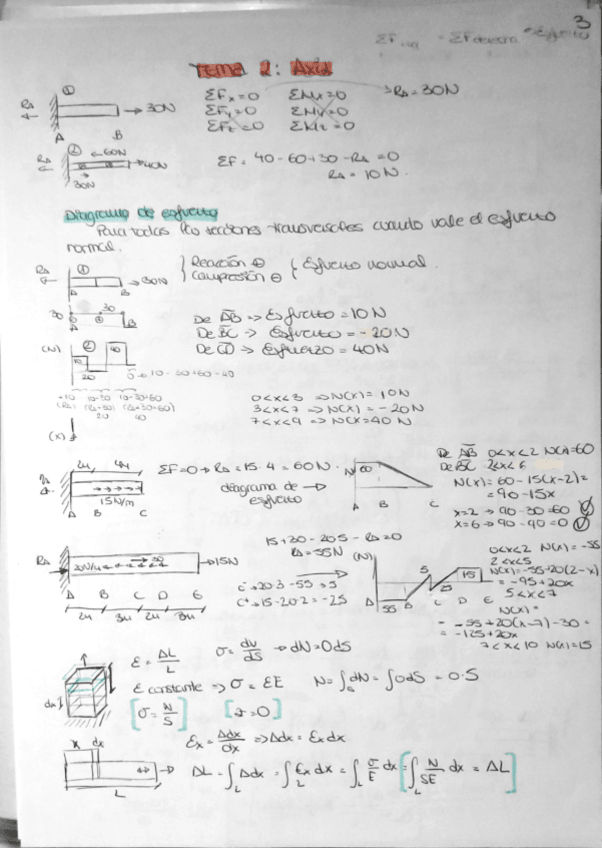 3
Tema 2: Axil
ΣFx=0 ΣMx=0 → RA=30N
ΣFy=0 ΣMy=0
ΣFz=0 ΣMz=0
RA ① 30N
A B
RA ② 60N 40N
30N
ΣF= 40-60+30-RA=0
RA=10N.
Diagrama de esfuerzo
Para todas las secciones transversales cuando vale el esfuerzo
normal.
RA ① 30N
A B
Reacción ⊕
Compresión ⊖
Esfuerzo normal.
30 30
A B
De AB => Esfuerzo = 10N
De BC -> Esfuerzo = -20N
De CD => Esfuerzo = 40N
(N) ② 10 20 40
10-30+60-40
+10 10-30 10-30+60
(RA) (RA-30) (RA-30+60)
20 40
(x)
0<x<3 => N(x)= 10N
3<x<7 => N(x) = -20N
7<x<9 => N(x)=40N
2m 4m
RA 15N/m
A B C
ΣF=0 → RA=15·4=60N.
diagrama de → esfuerzo
N 60
A B C
De AB 0<x<2 N(x)=60
De BC 2<x<6
N(x)= 60-15(x-2)=
=90-15x
x=2 → 90-30=60
x=6 → 90-90=0
RA 20N/m 30 15N
A B C D E
2m 3m 2m 3m
15+30-20·5-RA=0
RA=-55N
C⁻→20·3-55=5
C⁺→15-20·2=-25
(N) 5 15
55 25
A B C D E
0<x<2 N(x)=-55
2<x<5
N(x)=-55+20(2-x)
= -95+20x
5<x<7
N(x)=
= -55+20(x-7)-30=
= -125+20x
7<x<10 N(x)=15
ε = ΔL/L σ= dN/dS → dN=σdS
ε constante => σ= εE N=∫dN=∫σdS=σ·S
[σ=N/S] [τ=0]
x dx
L
εx= Δdx/dx => Δdx= εx dx
ΔL=∫L Δdx =∫L εx dx =∫L σ/E dx =[∫L N/SE dx = ΔL]